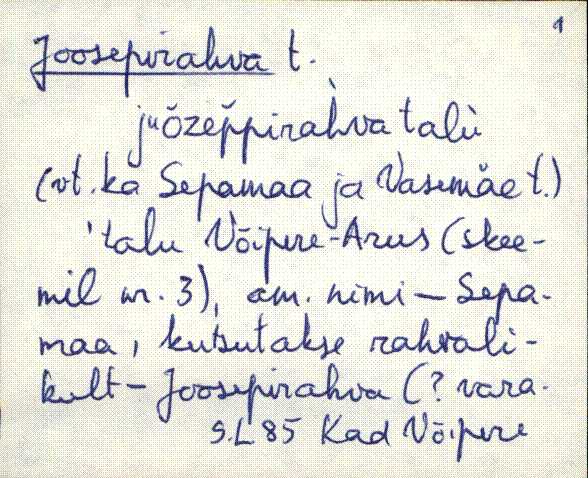 1
Joosepirahva t.
juõzeppiràhva talù
(vt. ka Sepamaa ja Vasemäe t.)
'talu Võipere-Arus (skee-
mil nr. 3), am. nimi — Sepa-
maa, kutsutakse rahvali-
kult — Joosepirahva (? vara-
S.L 85 Kad Võipere